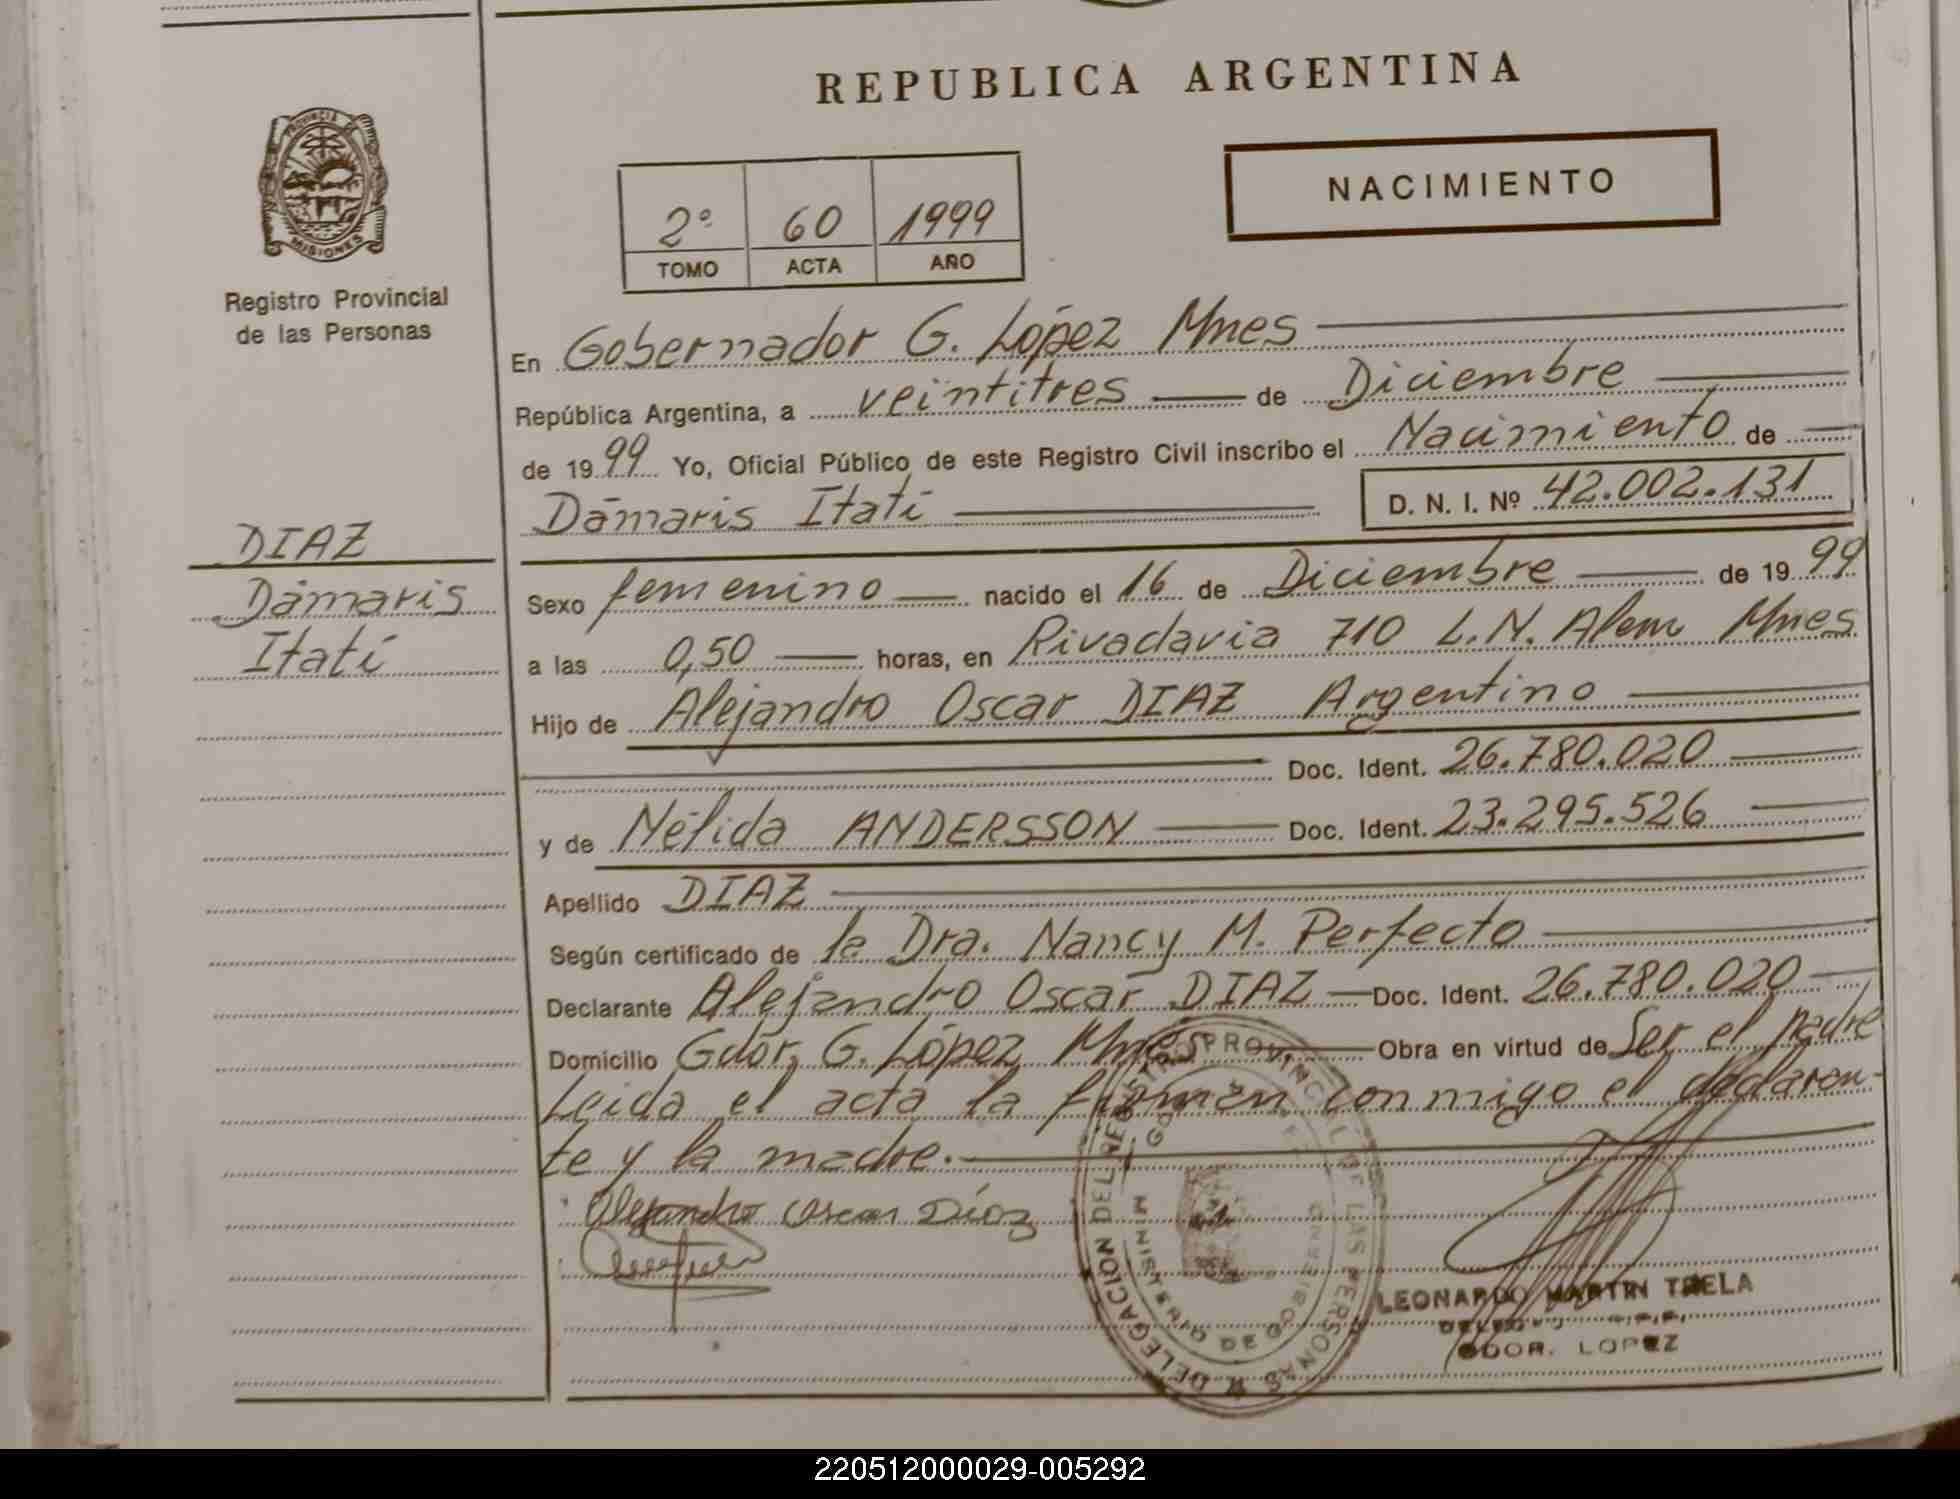 REPUBLICA ARGENTINA
PROVINCIA DE
MISIONES
Registro Provincial
de las Personas
NACIMIENTO
2º 60 1999
TOMO ACTA AÑO
En Gobernador G. López Mnes
República Argentina, a veintitres de Diciembre
de 1999 Yo, Oficial Público de este Registro Civil inscribo el Nacimiento de
Dámaris Itatí D. N. I. Nº 42.002.131
DIAZ
Dámaris
Itatí
Sexo femenino nacido el 16 de Diciembre de 1999
a las 0,50 horas, en Rivadavia 710 L.N. Alem Mnes
Hijo de Alejandro Oscar DIAZ Argentino
Doc. Ident. 26.780.020
y de Nélida ANDERSSON Doc. Ident. 23.295.526
Apellido DIAZ
Según certificado de la Dra. Nancy M. Perfecto
Declarante Alejandro Oscar DIAZ Doc. Ident. 26.780.020
Domicilio Gdor. G. López Mnes Obra en virtud de Ser el padre
Leida el acta la firman conmigo el declaran-
te y la madre.
Alejandro Oscar Díaz
DELEGACION DEL REGISTRO PROVINCIAL DE LAS PERSONAS
MINISTERIO DE GOBIERNO
LEONARDO MARTIN TRELA
GDOR. LOPEZ
220512000029-005292